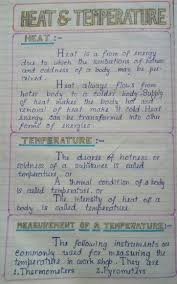 HEAT & TEMPERATURE
HEAT :-
Heat is a from of energy
due to which the sensations of hotness
and coldness of a body may be per-
ceived.
Heat always flows from
hoter body to a colder body. Supply
of heat makes the body hot and
removal of heat make it cold. Heat
energy can be transformed into other
forms of energies
TEMPERATURE :-
The degree of hotness or
coldness of a substances is called
temperature. or
A thermal condition of a body
is called temperature. or
The intensity of heat of a
body is called temperature.
MEASUREMENT OF A TEMPERATURE:-
The following instruments are
commonly used for measuring the
temperature in work shop. They are
1. Thermometers 2. Pyrometers